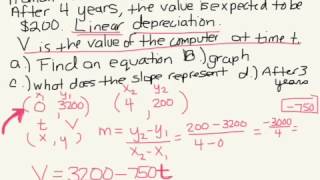 After 4 years, the value is expected to be
$200. Linear depreciation.
V is the value of the computer at time t.
a.) Find an equation B.) graph
c.) what does the slope represent d.) After 3 years
x₁ y₁ x₂ y₂
(0, 3200) (4, 200)
t, V
(x, y)
m = y₂-y₁ / x₂-x₁ = 200-3200 / 4-0 = -3000 / 4 =
-750
V = 3200-750t